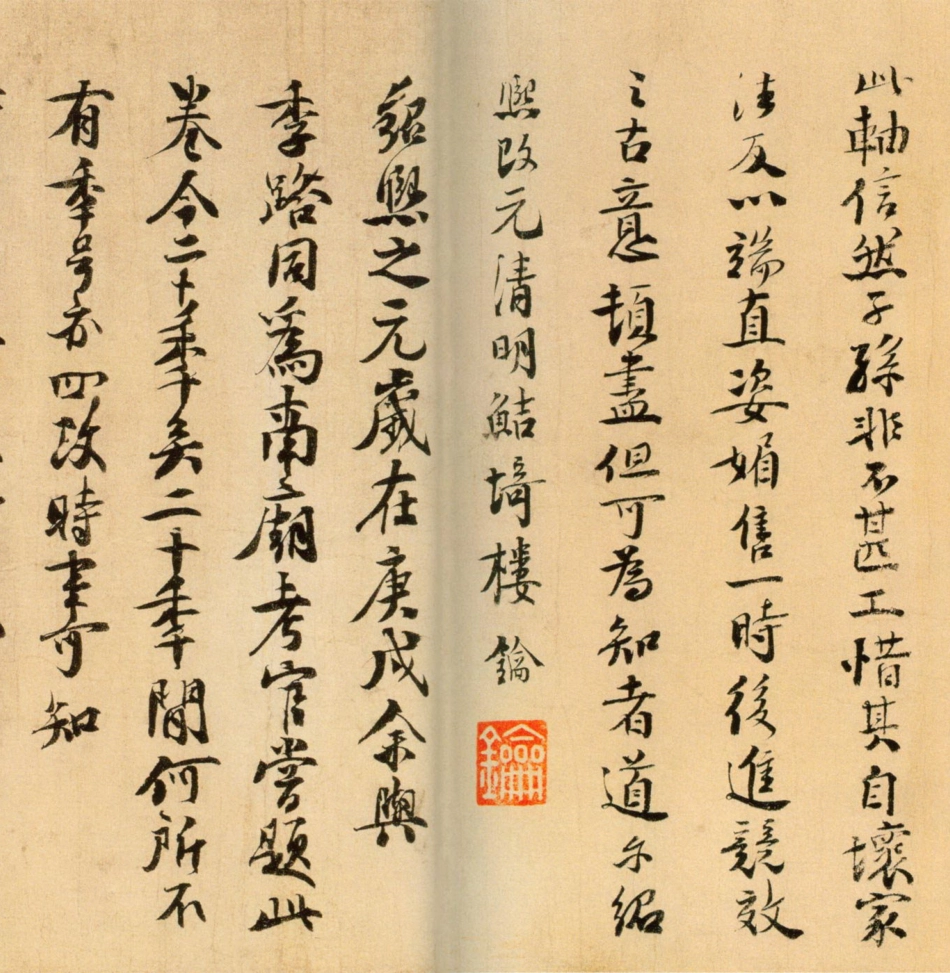 此軸信然子孫非不甚工惜其自壞家
法反以端直姿媚售一時後進競效
之古意頓盡但可為知者道尔紹
熙改元清明鮚埼樓鑰
鑰
紹熙之元歲在庚戌余與
季路同為南廟考官嘗題此
卷今二十秊矣二十秊間何所不
有秊号亦四改時事可知